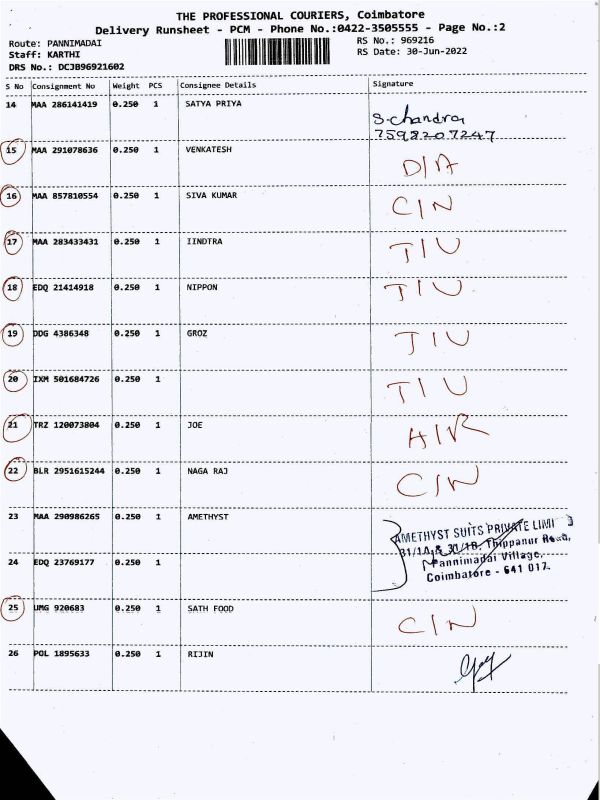 THE PROFESSIONAL COURIERS, Coimbatore
Delivery Runsheet - PCM - Phone No.:0422-3505555 - Page No.:2
Route: PANNIMADAI RS No.: 969216
Staff: KARTHI RS Date: 30-Jun-2022
DRS No.: DCJB96921602
S No Consignment No Weight PCS Consignee Details Signature
14 MAA 286141419 0.250 1 SATYA PRIYA
S.chandra
7598207247
15 MAA 291078636 0.250 1 VENKATESH D/A
16 MAA 857810554 0.250 1 SIVA KUMAR C/N
17 MAA 283433431 0.250 1 IINDTRA T/U
18 EDQ 21414918 0.250 1 NIPPON T/U
19 DDG 4386348 0.250 1 GROZ T/U
20 IXM 501684726 0.250 1 T/U
21 TRZ 120073804 0.250 1 JOE A/R
22 BLR 2951615244 0.250 1 NAGA RAJ C/N
23 MAA 290986265 0.250 1 AMETHYST
AMETHYST SUITS PRIVATE LIMI
31/1A & 31/1B, Thippanur Road,
24 EDQ 23769177 0.250 1 Pannimadai Village,
Coimbatore - 641 017.
25 UMG 920683 0.250 1 SATH FOOD C/N
26 POL 1895633 0.250 1 RIJIN